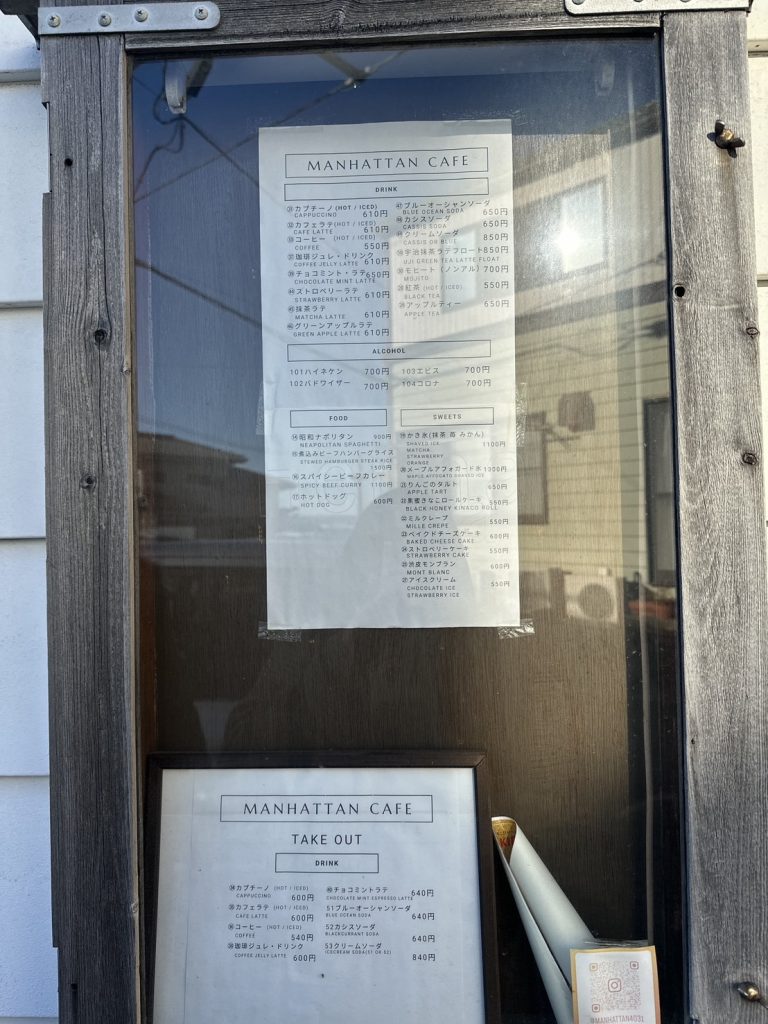 MANHATTAN CAFE
DRINK
㉛カプチーノ(HOT / ICED)
CAPPUCCINO 610円
㉜カフェラテ(HOT / ICED)
CAFE LATTE 610円
㉝コーヒー (HOT / ICED)
COFFEE 550円
珈琲ジュレ・ドリンク
COFFEE JELLY LATTE 610円
チョコミント・ラテ650円
CHOCOLATE MINT LATTE
ストロベリーラテ
STRAWBERRY LATTE 610円
抹茶ラテ
MATCHA LATTE 610円
グリーンアップルラテ
GREEN APPLE LATTE 610円
ブルーオーシャンソーダ
BLUE OCEAN SODA 650円
カシスソーダ
CASSIS SODA 650円
クリームソーダ 850円
CASSIS OR BLUE
宇治抹茶ラテフロート850円
UJI GREEN TEA LATTE FLOAT
モヒート (ノンアル) 700円
MOJITO
紅茶 (HOT / ICED) 550円
BLACK TEA
アップルティー 650円
APPLE TEA
ALCOHOL
101ハイネケン 700円
102バドワイザー 700円
103エビス 700円
104コロナ 700円
FOOD
⑭昭和ナポリタン 900円
NEAPOLITAN SPAGHETTI
⑮煮込みビーフハンバーグライス
STEWED HAMBURGER STEAK RICE
1500円
⑯スパイシービーフカレー
SPICY BEEF CURRY 1100円
⑰ホットドッグ 600円
HOT DOG
SWEETS
⑲かき氷(抹茶 苺 みかん)
SHAVED ICE 1100円
MATCHA
STRAWBERRY
ORANGE
⑳メープルアフォガード氷 1300円
MAPLE AFFOGATO SHAVED ICE
りんごのタルト 650円
APPLE TART
黒蜜きなこロールケーキ 550円
BLACK HONEY KINACO ROLL
ミルクレープ 550円
MILLE CREPE
㉓ベイクドチーズケーキ 600円
BAKED CHEESE CAKE
㉔ストロベリーケーキ 550円
STRAWBERRY CAKE
㉕渋皮モンブラン 600円
MONT BLANC
アイスクリーム 550円
CHOCOLATE ICE
STRAWBERRY ICE
MANHATTAN CAFE
TAKE OUT
DRINK
㉞カプチーノ (HOT / ICED)
CAPPUCCINO 600円
㉟カフェラテ (HOT / ICED)
CAFE LATTE 600円
㊱コーヒー (HOT / ICED)
COFFEE 540円
珈琲ジュレ・ドリンク
COFFEE JELLY LATTE 600円
チョコミントラテ 640円
CHOCOLATE MINT ESPRESSO LATTE
51ブルーオーシャンソーダ
BLUE OCEAN SODA 640円
52カシスソーダ
BLACKCURRANT SODA 640円
53クリームソーダ
ICECREAM SODA(51 OR 52) 840円
@MANHATTAN4031